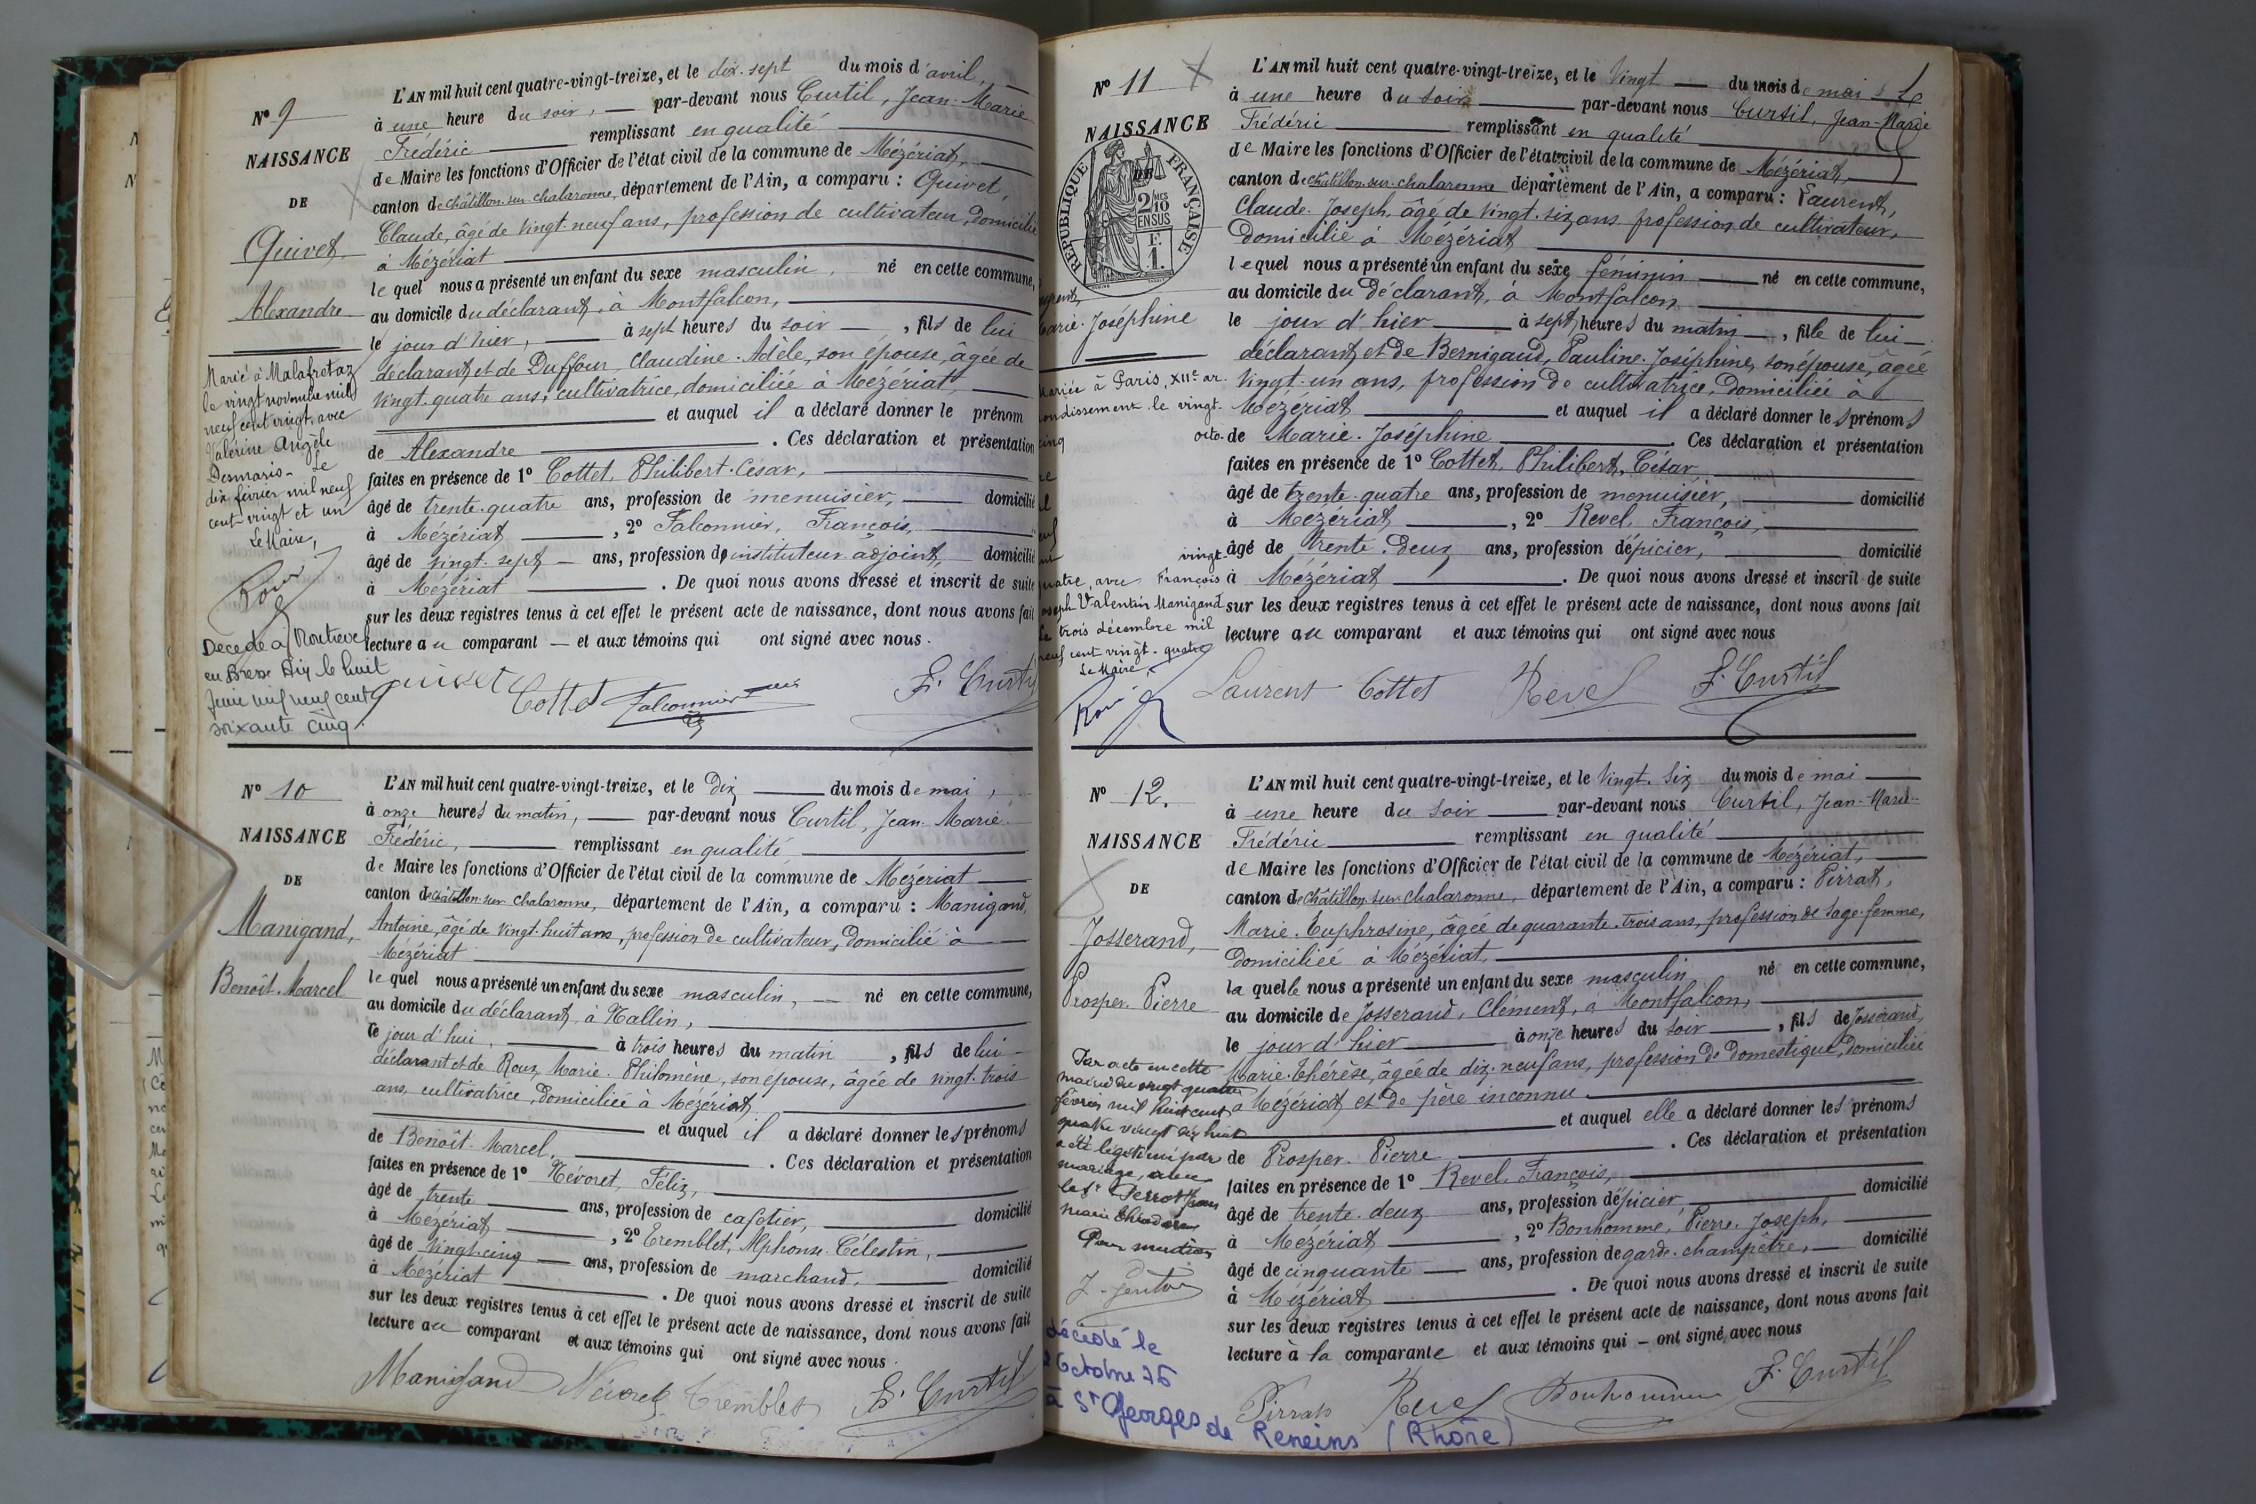 N° 9
NAISSANCE
DE
Quivet
Alexandre
L'AN mil huit cent quatre-vingt-treize, et le dix-sept du mois d'avril,
à une heure du soir, par-devant nous Curtil, Jean-Marie
Frédéric remplissant en qualité
de Maire les fonctions d'Officier de l'état civil de la commune de Mézériat,
canton de Châtillon-sur-Chalaronne, département de l'Ain, a comparu : Quivet,
Claude, âgé de vingt-neuf ans, profession de cultivateur, domicilié
à Mézériat
lequel nous a présenté un enfant du sexe masculin, né en cette commune,
au domicile du déclarant, à Montfalcon,
le jour d'hier, à sept heures du soir, fils de lui
déclarant et de Duffour, Claudine-Adèle, son épouse, âgée de
vingt-quatre ans, cultivatrice, domiciliée à Mézériat,
et auquel il a déclaré donner le prénom
de Alexandre. Ces déclaration et présentation
faites en présence de 1° Cottet, Philibert-César,
âgé de trente-quatre ans, profession de menuisier, domicilié
à Mézériat, 2° Falconnier, François,
âgé de vingt-sept ans, profession d'instituteur adjoint, domicilié
à Mézériat. De quoi nous avons dressé et inscrit de suite
sur les deux registres tenus à cet effet le présent acte de naissance, dont nous avons fait
lecture au comparant et aux témoins qui ont signé avec nous.
Quivet Cottet Falconnier F. Curtil
Marié à Malafretaz
le vingt novembre mil
neuf cent vingt, avec
Valérine Angèle
Desmaris. Le
dix février mil neuf
cent vingt et un
Le Maire,
Décédé à Montrevel
en Bresse Ain le huit
Juin mil neuf cent
soixante cinq.
N° 10
NAISSANCE
DE
Manigand,
Benoît-Marcel
L'AN mil huit cent quatre-vingt-treize, et le Dix du mois de mai,
à onze heures du matin, par-devant nous Curtil, Jean-Marie
Frédéric, remplissant en qualité
de Maire les fonctions d'Officier de l'état civil de la commune de Mézériat
canton de Châtillon-sur-Chalaronne, département de l'Ain, a comparu : Manigand,
Antoine, âgé de vingt-huit ans, profession de cultivateur, domicilié à
Mézériat
lequel nous a présenté un enfant du sexe masculin, né en cette commune,
au domicile du déclarant, à Hallin,
le jour d'hui, à trois heures du matin, fils de lui
déclarant et de Roux, Marie-Philomène, son épouse, âgée de vingt-trois
ans, cultivatrice, domiciliée à Mézériat
et auquel il a déclaré donner les prénoms
de Benoît-Marcel. Ces déclaration et présentation
faites en présence de 1° Névoret, Félix,
âgé de trente ans, profession de cafetier, domicilié
à Mézériat, 2° Tremblet, Alphonse-Célestin,
âgé de vingt-cinq ans, profession de marchand, domicilié
à Mézériat. De quoi nous avons dressé et inscrit de suite
sur les deux registres tenus à cet effet le présent acte de naissance, dont nous avons fait
lecture au comparant et aux témoins qui ont signé avec nous.
Manigand Névoret Tremblet F. Curtil
N° 11
NAISSANCE
DE
RÉPUBLIQUE FRANÇAISE
2/10
EN SUS
F.
1.
Marie-Joséphine
L'AN mil huit cent quatre-vingt-treize, et le Vingt du mois de mai
à une heure du soir par-devant nous Curtil, Jean-Marie
Frédéric remplissant en qualité
de Maire les fonctions d'Officier de l'état civil de la commune de Mézériat,
canton de Châtillon-sur-Chalaronne département de l'Ain, a comparu : Laurent,
Claude-Joseph, âgé de vingt-six ans profession de cultivateur,
domicilié à Mézériat
lequel nous a présenté un enfant du sexe féminin né en cette commune,
au domicile du déclarant, à Montfalcon
le jour d'hier à sept heures du matin, fille de lui
déclarant et de Bernigaud, Pauline-Joséphine, son épouse, âgée
vingt-un ans, profession de cultivatrice, domiciliée à
Mézériat et auquel il a déclaré donner les prénoms
de Marie-Joséphine. Ces déclaration et présentation
faites en présence de 1° Cottet, Philibert, César
âgé de trente-quatre ans, profession de menuisier, domicilié
à Mézériat, 2° Revel, François,
âgé de trente-deux ans, profession d'épicier, domicilié
à Mézériat. De quoi nous avons dressé et inscrit de suite
sur les deux registres tenus à cet effet le présent acte de naissance, dont nous avons fait
lecture au comparant et aux témoins qui ont signé avec nous
Laurent Cottet Revel F. Curtil
Mariée à Paris, XIIe ar-
rondissement le vingt-
cinq octo-
vingt-
quatre, avec François
Joseph Valentin Manigand
Le trois décembre mil
neuf cent vingt-quatre
Le Maire,
N° 12.
NAISSANCE
DE
Josserand,
Prosper-Pierre
L'AN mil huit cent quatre-vingt-treize, et le Vingt-six du mois de mai
à une heure du soir par-devant nous Curtil, Jean-Marie
Frédéric remplissant en qualité
de Maire les fonctions d'Officier de l'état civil de la commune de Mézériat,
canton de Châtillon-sur-Chalaronne, département de l'Ain, a comparu : Pirrat,
Marie-Euphrosine, âgée de quarante-trois ans, profession de sage-femme,
domiciliée à Mézériat,
laquelle nous a présenté un enfant du sexe masculin né en cette commune,
au domicile de Josserand, Clément, à Montfalcon,
le jour d'hier à onze heures du soir, fils de Josserand,
Marie-Thérèse, âgée de dix-neuf ans, profession de domestique, domiciliée
à Mézériat et de père inconnu
et auquel elle a déclaré donner les prénoms
de Prosper-Pierre. Ces déclaration et présentation
faites en présence de 1° Revel, François,
âgé de trente-deux ans, profession d'épicier domicilié
à Mézériat, 2° Bonhomme, Pierre-Joseph,
âgé de cinquante ans, profession de garde-champêtre, domicilié
à Mézériat. De quoi nous avons dressé et inscrit de suite
sur les deux registres tenus à cet effet le présent acte de naissance, dont nous avons fait
lecture à la comparante et aux témoins qui ont signé avec nous
Pirrat Revel Bonhomme F. Curtil
Par acte en cette
mairie du vingt quatre
février mil huit cent
quatre vingt dix huit
a été légitimé par
mariage, avec
le Sr Perrot Jean
Marie
Pour mention
décédé le
Octobre 76
à St Georges de Reneins (Rhône)